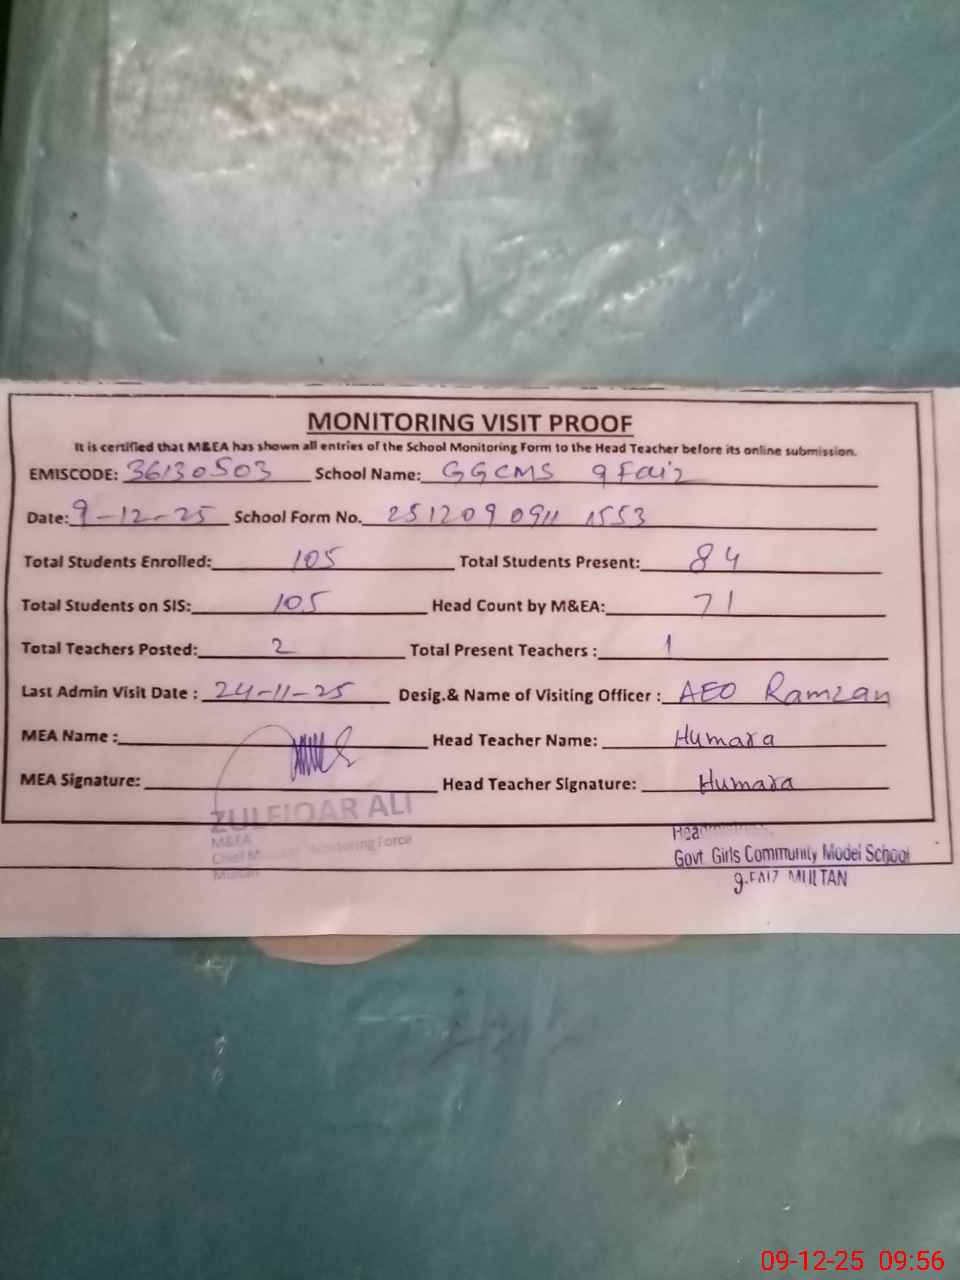 MONITORING VISIT PROOF
It is certified that M&EA has shown all entries of the School Monitoring Form to the Head Teacher before its online submission.
EMISCODE: 36130503 School Name: GGCMS 9 Faiz
Date: 9-12-25 School Form No. 2512090911 1553
Total Students Enrolled: 105 Total Students Present: 84
Total Students on SIS: 105 Head Count by M&EA: 71
Total Teachers Posted: 2 Total Present Teachers : 1
Last Admin Visit Date : 24-11-25 Desig.& Name of Visiting Officer : AEO Ramzan
MEA Name : Head Teacher Name: Humara
MEA Signature: Head Teacher Signature: Humara
ZULFIQAR ALI
M&EA
Monitoring Force
Multan
Govt Girls Community Model School
9-FAIZ MULTAN
09-12-25 09:56